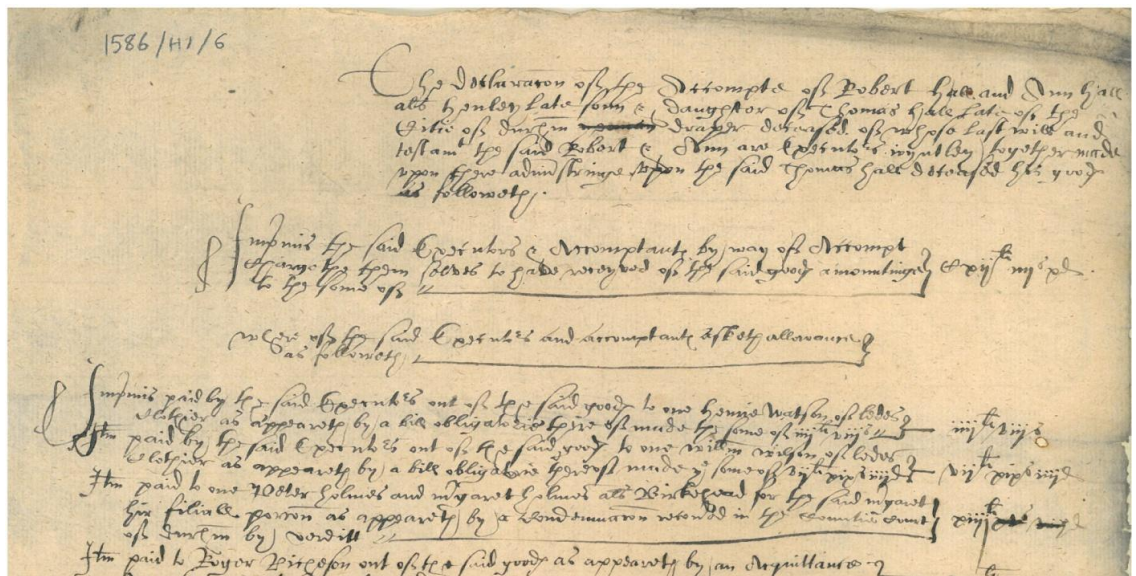 1586/H1/6
The declaracon off the Accompte off Robert Hall and Ann Hall
als Henley late sonn & daughter off Thomas Hall late of the
Citie off Durhm draper deceased off whose last will and
testamt the said Robert & Ann are Executors together made
upon there administringe upon the said Thomas Hall deceased his goods
as followeth.
Inprimis the said Executors & Accomptants by way off Accompt
charge the them selves to have receyved off the said goods amountinge
to the some off
where off the said Executors and accomptants asketh allowance
as followeth
Inprimis paid by the said Executors out off the said goods to one Henrie Watson off ledes
clothier as appeareth by a bill obligatorie there off made the some off iiijli viijs iiijli viijs
Itm paid by the said Executors out off the said goods to one Willm Wilson off ledes
clothier as appeareth by a bill obligatorie thereoff made ye some off vijli xixs iiijd vijli xixs iiijd
Itm paid to one Peter Holmes and Mgaret Holmes als Birkehead for the said mgaret
hir filiall porcon as appeareth by a Condemnacon recorded in the Countie Court
off Durhm by verditt
Itm paid to Roger Richeson out off the said goods as appeareth by an Acquittance